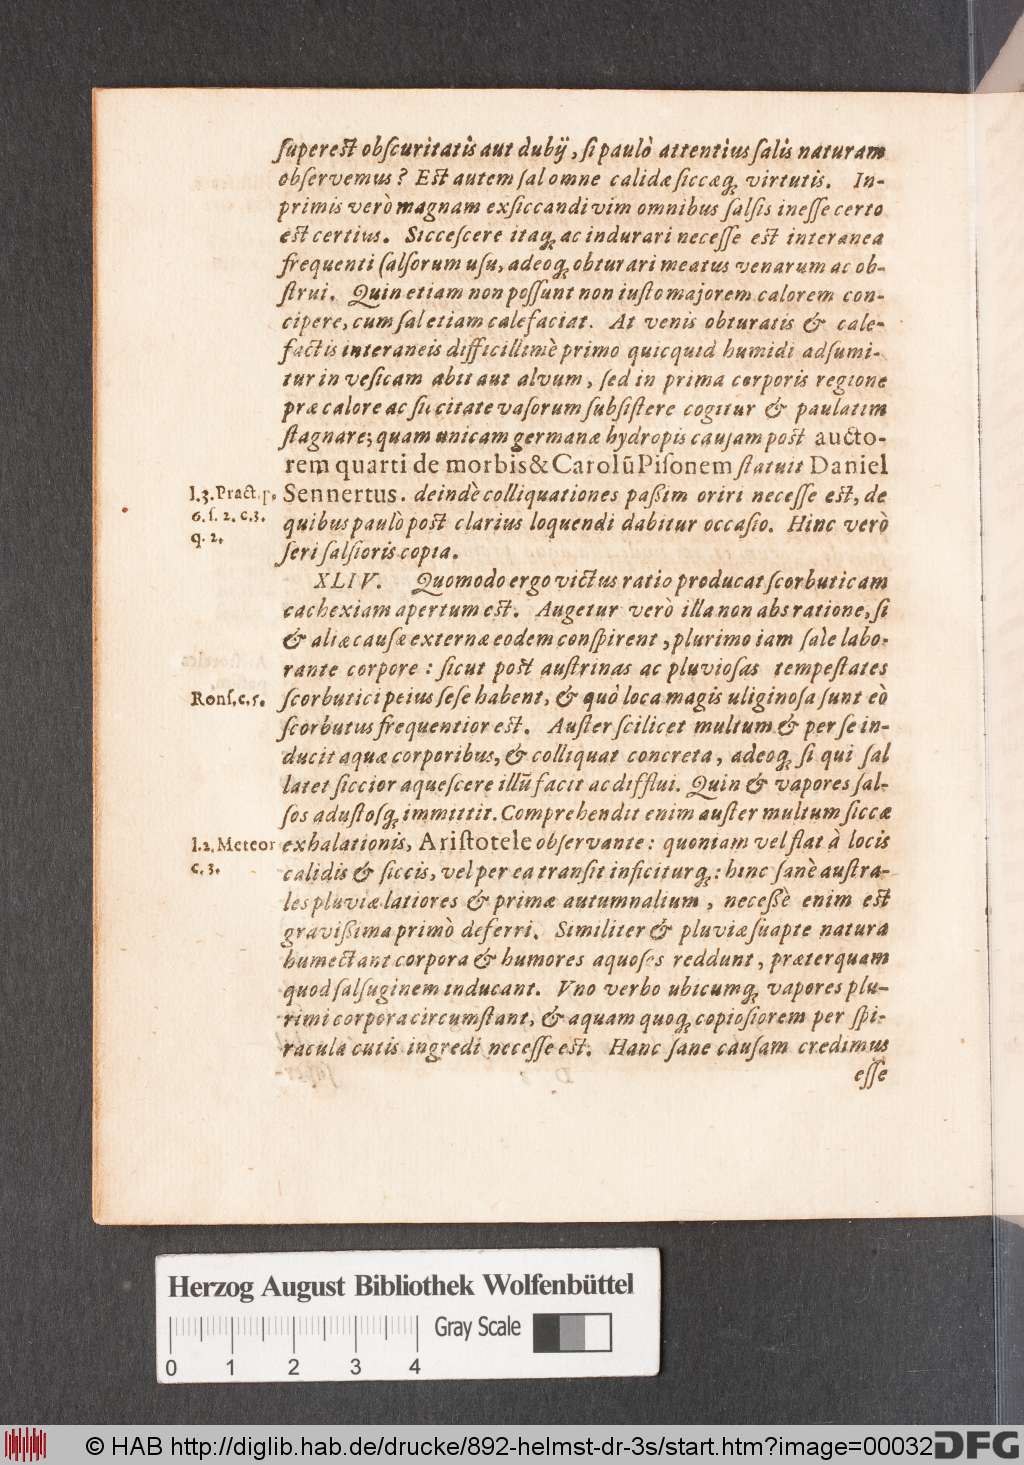 ſupereſt obſcuritatis aut dubij, ſi paulò attentius ſalis naturam
obſervemus? Eſt autem ſal omne calidæ ſiccæq́; virtutis. In-
primis verò magnam exſiccandi vim omnibus ſalſis ineſſe certo
eſt certius. Sicceſcere itaq́; ac indurari neceſſe eſt interanea
frequenti ſalſorum uſu, adeoq́; obturari meatus venarum ac ob-
ſtrui. Quin etiam non poſſunt non iuſto majorem calorem con-
cipere, cum ſal etiam calefaciat. At venis obturatis & cale-
factis interaneis difficillimè primo quicquid humidi adſumi-
tur in veſicam abit aut alvum, ſed in prima corporis regione
præ calore ac ſiccitate vaſorum ſubſiſtere cogitur & paulatim
ſtagnare; quam unicam germanæ hydropis cauſam poſt aucto-
rem quarti de morbis & Carolũ Piſonem ſtatuit Daniel
l.3. Pract. p.
6. ſ. 2. c.3.
q. 2.
Sennertus. deindè colliquationes paßim oriri neceſſe eſt, de
quibus paulò poſt clarius loquendi dabitur occaſio. Hinc verò
ſeri ſalſioris copia.
XLIV. Quomodo ergo victus ratio producat ſcorbuticam
cachexiam apertum eſt. Augetur verò illa non abs ratione, ſi
& aliæ cauſæ externæ eodem conſpirent, plurimo iam ſale labo-
rante corpore: ſicut poſt auſtrinas ac pluvioſas tempeſtates
Ronſ. c. 5.
ſcorbutici peius ſeſe habent, & quò loca magis uliginoſa ſunt eò
ſcorbutus frequentior eſt. Auſter ſcilicet multum & per ſe in-
ducit aquæ corporibus, & colliquat concreta, adeoq́; ſi qui ſal
latet ſiccior aqueſcere illũ facit ac difflui. Quin & vapores ſal-
ſos aduſtoſq́; immittit. Comprehendit enim auſter multum ſiccæ
l.2. Meteor
c. 3.
exhalationis, Ariſtotele obſervante: quoniam vel flat à locis
calidis & ſiccis, vel per ea tranſit inficiturq́;: hinc ſanè auſtra-
les pluviæ latiores & primæ autumnalium, neceßè enim eſt
gravißima primò deferri. Similiter & pluviæ ſuapte natura
humectant corpora & humores aquoſos reddunt, præterquam
quod ſalſuginem inducant. Vno verbo ubicumq́; vapores plu-
rimi corpora circumſtant, & aquam quoq́; copioſiorem per ſpi-
racula cutis ingredi neceſſe eſt. Hanc ſane cauſam credimus
eſſe
Herzog August Bibliothek Wolfenbüttel
Gray Scale
0 1 2 3 4
© HAB http://diglib.hab.de/drucke/892-helmst-dr-3s/start.htm?image=00032
DFG